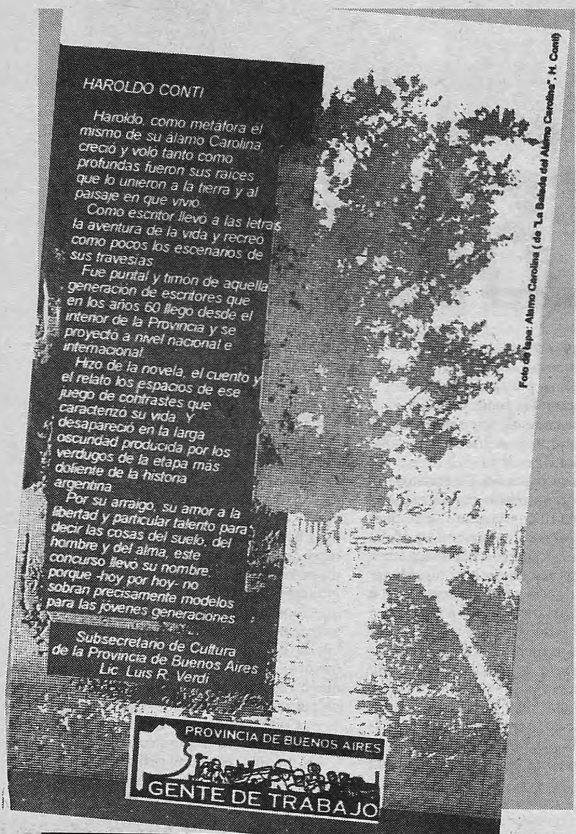 HAROLDO CONTI
Haroldo, como metáfora el
mismo de su álamo Carolina,
creció y voló tanto como
profundas fueron sus raíces
que lo unieron a la tierra y al
paisaje en que vivió.
Como escritor llevó a las letras
la aventura de la vida y recreó
como pocos los escenarios de
sus travesías.
Fue puntal y timón de aquella
generación de escritores que
en los años 60 llegó desde el
interior de la Provincia y se
proyectó a nivel nacional e
internacional.
Hizo de la novela, el cuento y
el relato los espacios de ese
juego de contrastes que
caracterizó su vida. Y
desapareció en la larga
oscuridad producida por los
verdugos de la etapa más
doliente de la historia
argentina.
Por su arraigo, su amor a la
libertad y particular talento para
decir las cosas del suelo, del
hombre y del alma, este
concurso llevó su nombre,
porque -hoy por hoy- no
sobran precisamente modelos
para las jóvenes generaciones
Subsecretario de Cultura
de la Provincia de Buenos Aires
Lic. Luis R. Verdi
Foto de tapa: Alamo Carolina ( de "La Balada del Alamo Carolina", H. Conti)
PROVINCIA DE BUENOS AIRES
GENTE DE TRABAJO